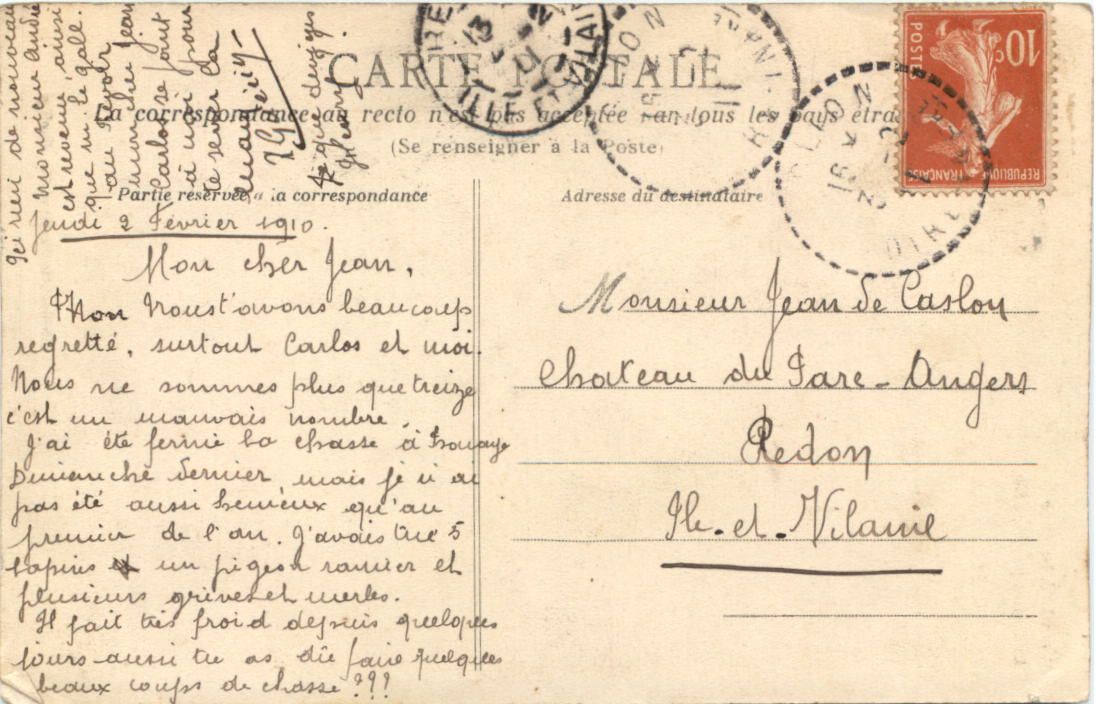 CARTE POSTALE
La correspondance au recto n'est pas acceptée par tous les pays étra
(Se renseigner à la Poste)
Partie réservée à la correspondance
Adresse du destinataire
Jeudi 2 Février 1910.
Mon cher Jean,
Nous t'avons beaucoup
regretté, surtout Carlos et moi.
Nous ne sommes plus que treize
c'est un mauvais nombre.
J'ai été fermé la chasse à
Dimanche dernier, mais je n'ai
pas été aussi heureux qu'au
premier de l'an. J'avais tué 5
lapins un pigeon ramier et
plusieurs grives et merles.
Il fait très froid depuis quelques
jours aussi tu as dû faire quelques
beaux coups de chasse???
Ici rien de nouveau
Monsieur André
est revenu, ainsi
que M. le Gall.
Au Revoir
mon cher Jean
Carlos se joint
à moi pour
te serrer la
main
Henry.
Monsieur Jean de Caslou
Chateau du Parc-Angers
Redon
Ile-et-Vilaine
10c
POSTES
REPUBLIQUE FRANÇAISE
ILLE ET VILAINE